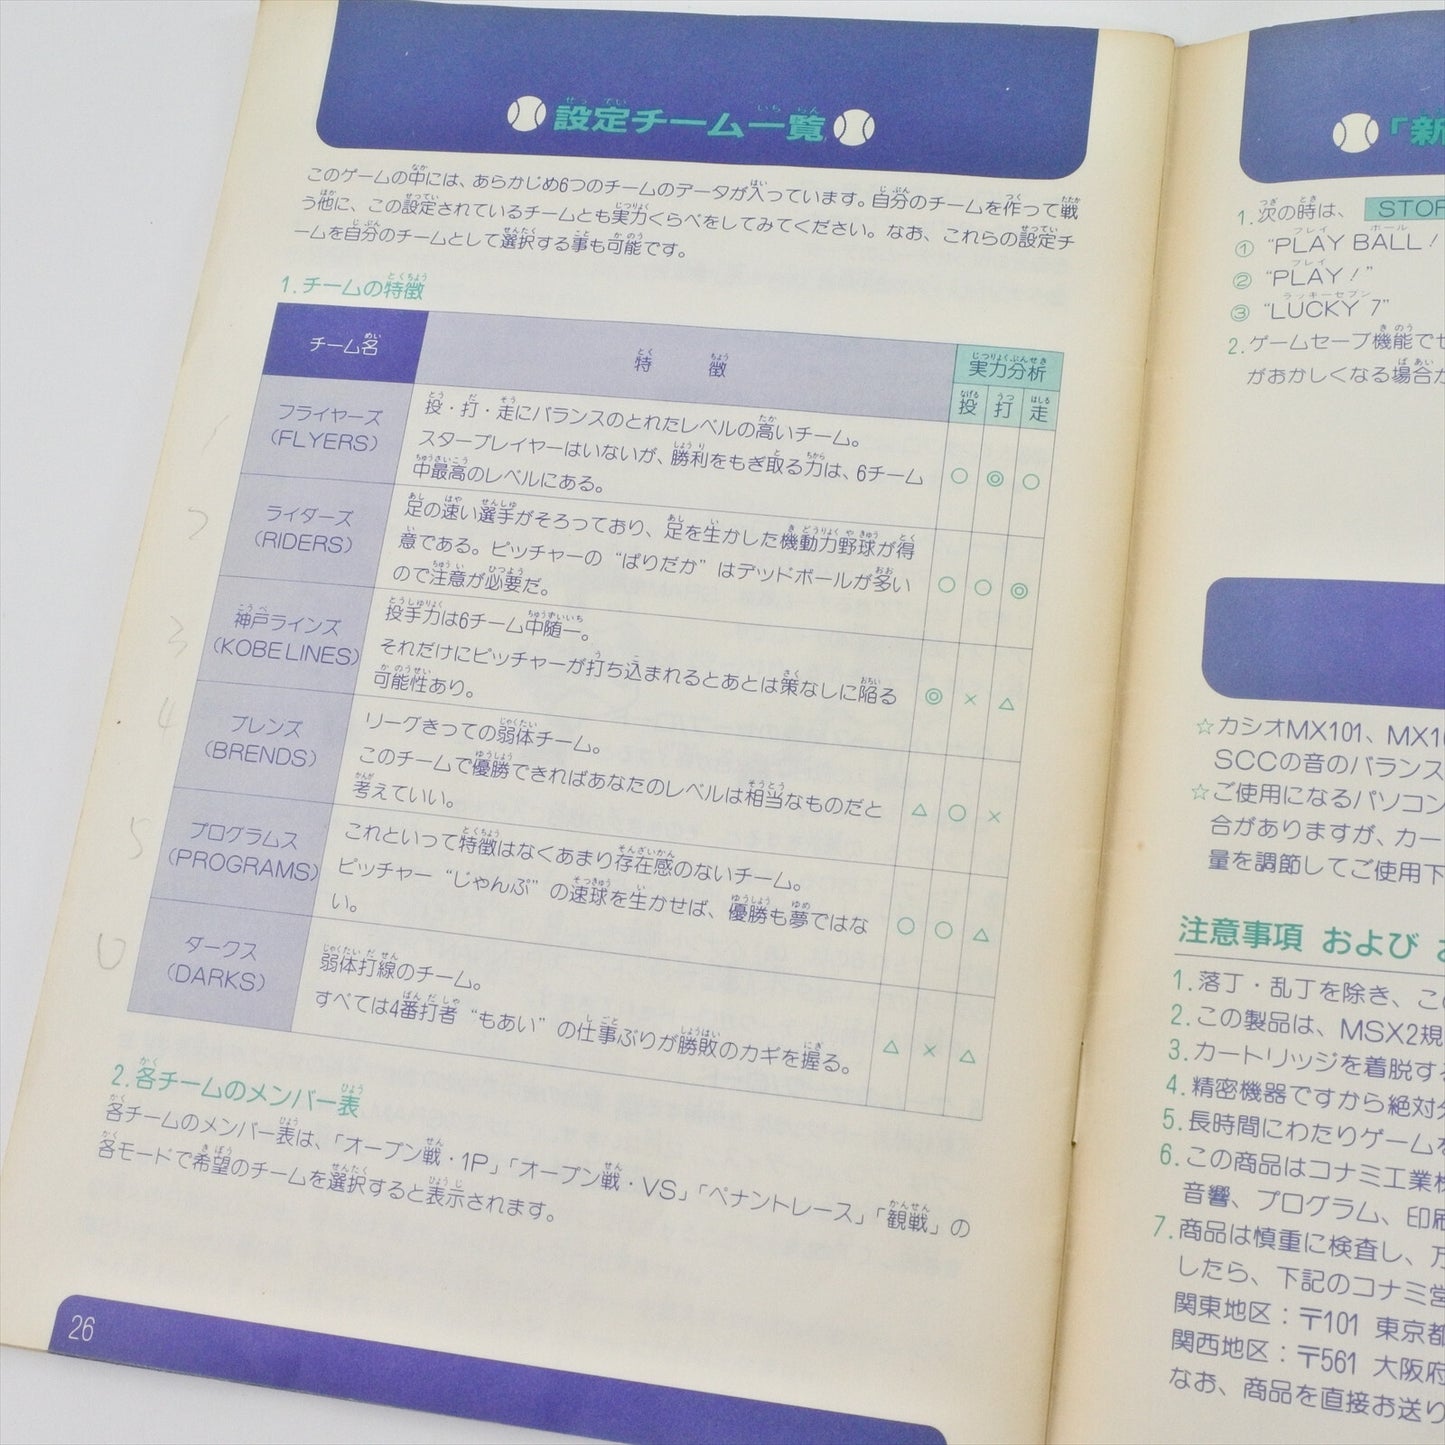 設定チーム一覧
このゲームの中には、あらかじめ6つのチームのデータが入っています。自分のチームを作って戦
う他に、この設定されているチームとも実力くらべをしてみてください。なお、これらの設定チ
ームを自分のチームとして選択する事も可能です。
1.チームの特徴
チーム名
特徴
実力分析
投 打 走
フライヤーズ
(FLYERS)
投・打・走にバランスのとれたレベルの高いチーム。
スタープレイヤーはいないが、勝利をもぎ取る力は、6チーム
中最高のレベルにある。
○ ◎ ○
ライダーズ
(RIDERS)
足の速い選手がそろっており、足を生かした機動力野球が得
意である。ピッチャーの“ぱりだか”はデッドボールが多い
ので注意が必要だ。
○ ○ ◎
神戸ラインズ
(KOBELINES)
投手力は6チーム中随一。
それだけにピッチャーが打ち込まれるとあとは策なしに陥る
可能性あり。
◎ × △
ブレンズ
(BRENDS)
リーグきっての弱体チーム。
このチームで優勝できればあなたのレベルは相当なものだと
考えていい。
△ ○ ×
プログラムス
(PROGRAMS)
これといって特徴はなくあまり存在感のないチーム。
ピッチャー“じゃんぷ”の速球を生かせば、優勝も夢ではな
い。
○ ○ △
ダークス
(DARKS)
弱体打線のチーム。
すべては4番打者“もあい”の仕事ぶりが勝敗のカギを握る。
△ × △
1
2
3
4
5
0
2.各チームのメンバー表
各チームのメンバー表は、「オープン戦・1P」「オープン戦・VS」「ペナントレース」「観戦」の
各モードで希望のチームを選択すると表示されます。
26
「新
1.次の時は、 STOP
① “PLAY BALL!
② “PLAY!”
③ “LUCKY 7”
2.ゲームセーブ機能でセ
がおかしくなる場合か
☆カシオMX101、MX10
SCCの音のバランス
☆ご使用になるパソコン
合がありますが、カー
量を調節してご使用下
注意事項 および お
1.落丁・乱丁を除き、この
2.この製品は、MSX2規
3.カートリッジを着脱する
4.精密機器ですから絶対分
5.長時間にわたりゲームを
6.この商品はコナミ工業株
音響、プログラム、印刷
7.商品は慎重に検査し、万
したら、下記のコナミ営
関東地区：〒101 東京都
関西地区：〒561 大阪府
なお、商品を直接お送り